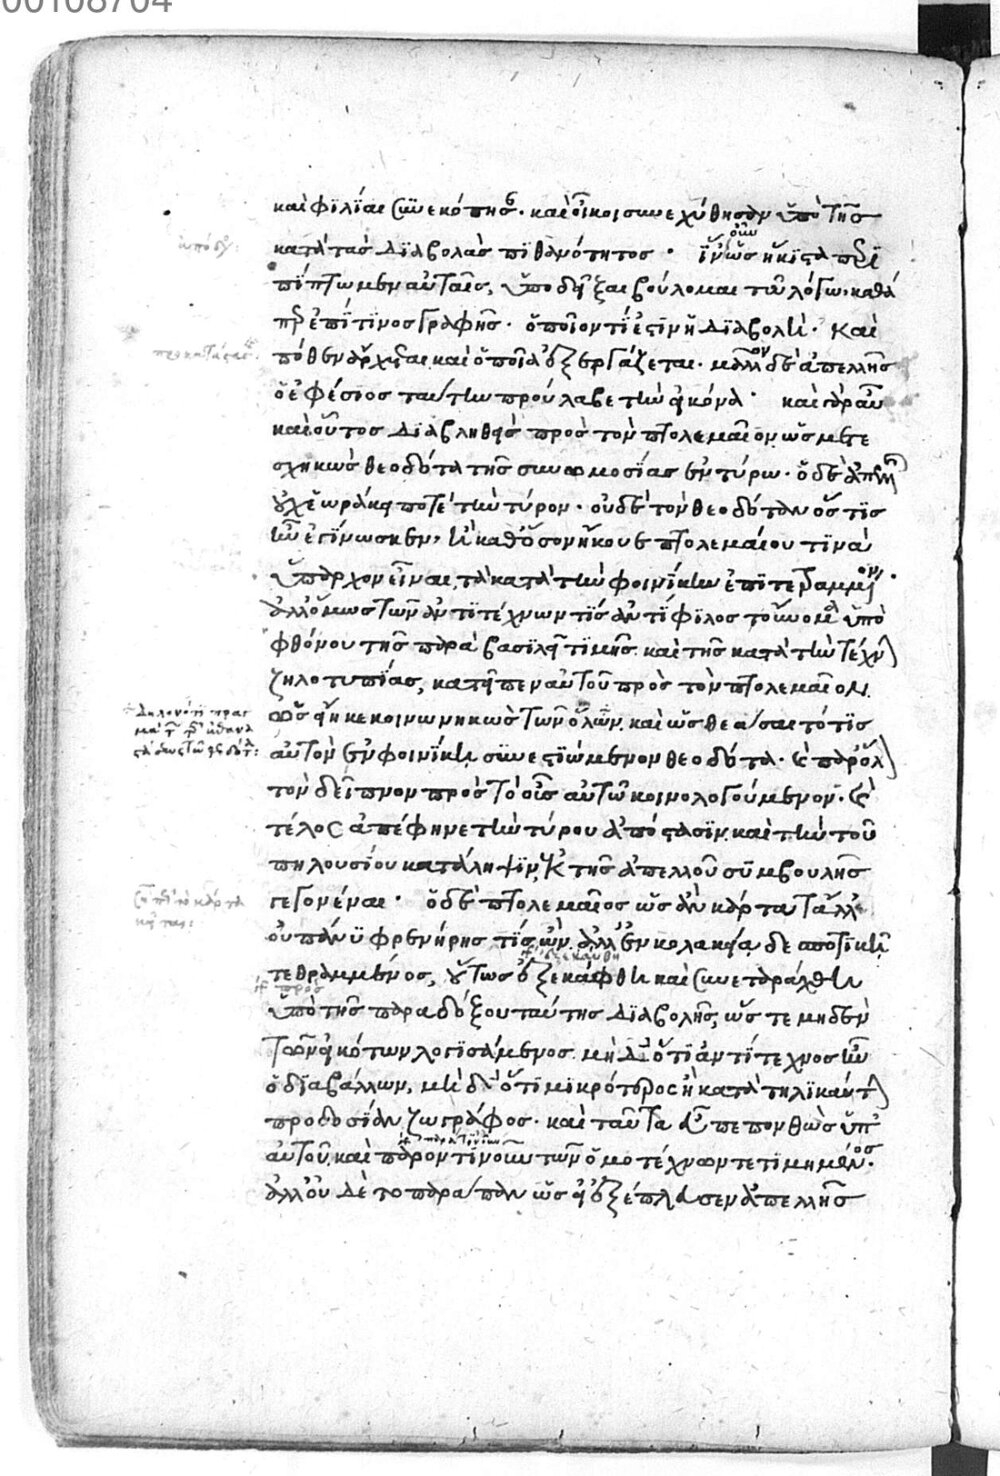 00108704
καὶ φϊλίαι συνεκόπησαν. καὶ οἶκοι συνεχύθησαν ὑπὸ τῆς
κατὰ τὰς διαβολὰς πϊθανότητος · ἵν' οὖν ὡς ἥκϊστα περϊ
πίπτωμεν αὐταῖς, ὑποδεῖξαι βούλομαι τῶ λόγω. καθά
περ ἐπί τϊνος γραφῆς. ὁποῖόν τί ἐστϊν ἡ διαβολὴ. καὶ
πόθεν ἄρχεται καὶ ὁποῖα ἐξεργάζεται. μᾶλλον δὲ ἀπελλῆς
ὁ ἐφέσιος ταύτην προύλαβε τὴν εἰκόνα · καὶ γὰρ αὖ
καὶ οὗτος διαβληθεὶς πρὸς τὸν πτολεμαῖον ὡς μετε
σχηκὼς θεοδότα τῆς συνωμοσίας ἐν τύρω. ὁ δὲ ἀπελλῆς
οὐχ ἑωράκει ποτὲ τὴν τύρον. οὐδὲ τὸν θεοδόταν ὅς τϊς
ἦν ἐγίνωσκεν, ἢ καθ' ὅσον ἤκουε πτολεμαίου τϊνὰ
ὕπαρχον εἶναι, τὰ κατὰ τὴν φοινίκην ἐπϊτετραμμένον.
ἀλλ' ὅμως τῶν ἀντϊτέχνων τϊς ἀντίφϊλος τοὔνομα ὑπὸ
φθόνου τῆς παρὰ βασϊλεῖ τϊμῆς καὶ τῆς κατὰ τὴν τέχνην
ζηλοτυπίας, κατεῖπεν αὐτοῦ πρὸς τὸν πτολεμαῖον.
ὡς εἴη κεκοινωνηκὼς τῶν ὅλων. καὶ ὡς θεάσαιτό τϊς
αὐτὸν ἐν φοινίκη συνεστϊώμενον θεοδότα. καὶ παρ' ὅλον
τὸν δεῖπνον πρὸς τὸ οὖς αὐτῶ κοινολογούμενον. καὶ
τέλος ἀπέφηνε τὴν τύρου ἀπόστασϊν. καὶ τὴν τοῦ
πηλουσίου κατάληψϊν, ἐκ τῆς ἀπελλοῦ συμβουλῆς
γεγονέναι · ὁ δὲ πτολεμαῖος ὡς ἂν καὶ τἆλλα
οὐ πάνυ φρενήρης τϊς ὢν. ἀλλ' ἐν κολακεία δεσποτϊκῆ
τεθραμμένος, οὕτως ἐξεκαύθη καὶ συνεταράχθη
πρὸς
ὑπὸ τῆς παραδόξου ταύτης διαβολῆς, ὥστε μηδὲν
τῶν εἰκότων λογϊσάμενος. μὴ δ' ὅτϊ ἀντίτεχνος ἦν
ὁ διαβάλλων, μὴ δ' ὅτϊ μϊκρότερος ἢ κατὰ τηλϊκαύτην
προδοσίαν ζωγράφος. καὶ ταῦτα εὖ πεπονθὼς ὑπ'
αὐτοῦ. καὶ παρ' ὁντϊνοῦν τῶν ὁμοτέχνων τετϊμημένος.
ἀλλ' οὐδὲ τὸ παράπαν ὡς εἰ ἐξέπλευσεν ἀπελλῆς